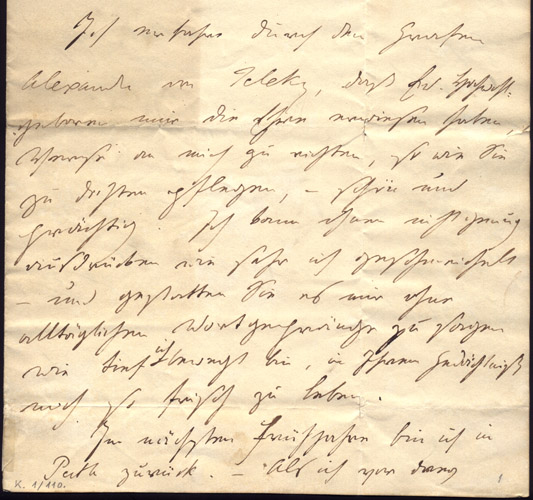 Ich erfahre durch den Grafen
Alexander von Teleky, daß Ew. Hochwohl-
geboren mir die Ehre erwiesen haben,
Verse an mich zu richten, so wie Sie
zu dichten pflegen, – schön und
Ich kann Ihnen nicht genug
ausdrücken wie sehr ich geschmeichelt
– und gestatten Sie es mir ohne
alltäglichen Wortgepränge zu sagen
wie tief ich bewegt bin, in Ihrem Gedächtniß
noch so frisch zu leben.
Im nächsten Frühjahre bin ich in
Pesth zurück. – Als ich vor dem
K. 1/110.
1